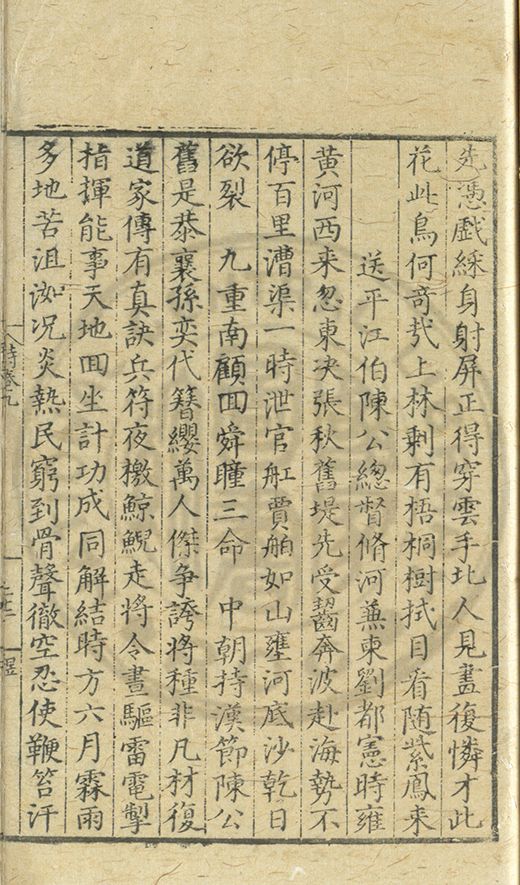 先憑戲綵身射屏正得穿雲手北人見畫復憐才此
花此鳥何奇㢤上林剩有梧桐樹拭目看随紫鳳来
送平江伯陳公總督脩河蕪柬劉都憲時雍
黄河西来忽東决張秋舊堤先受齧奔波赴海勢不
停百里漕渠一時泄官舡賈舶如山壅河底沙乾日
欲裂 九重南顧囬舜瞳三命 中朝持漢節陳公
舊是恭襄孫奕代簪纓萬人傑争誇將種非凡材復
道家傳有真訣兵符夜檄鯨鯢走將令晝驅雷電掣
指揮能事天地囬坐計功成同解結時方六月霖雨
多地苦沮洳况炎熱民窮到骨聲徹空忍使鞭笞汗
詩卷九